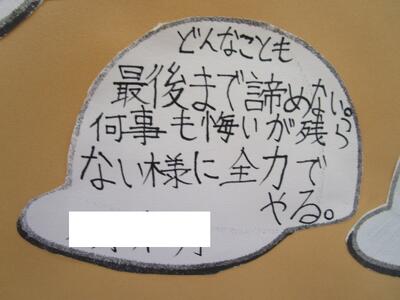 どんなことも
最後まで諦めない。
何事も悔いが残ら
ない様に全力で
やる。